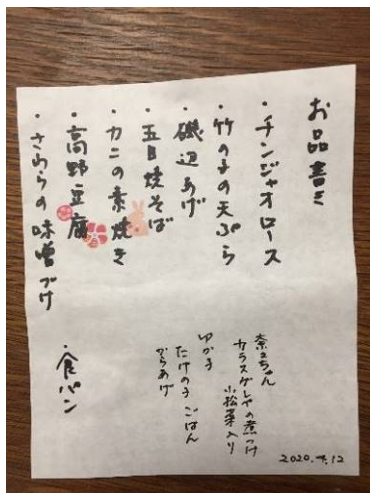 お品書き
・チンジャオロース
・竹の子の天ぷら
・磯辺あげ
・五目焼そば
・カニの素焼き
・高野豆腐
・さわらの味噌づけ
・食パン
奈々ちゃん
カラスガレイの煮つけ
小松菜入り
ゆか子
たけの子ごはん
からあげ
2020.4.12